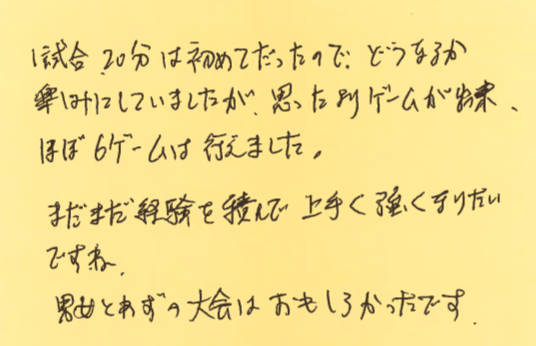 1試合20分は初めてだったので、どうなるか
楽しみにしていましたが、思ったよりゲームが出来、
ほぼ6ゲームは行えました。
まだまだ経験を積んで上手く強くなりたい
ですね。
男女とわずの大会はおもしろかったです.